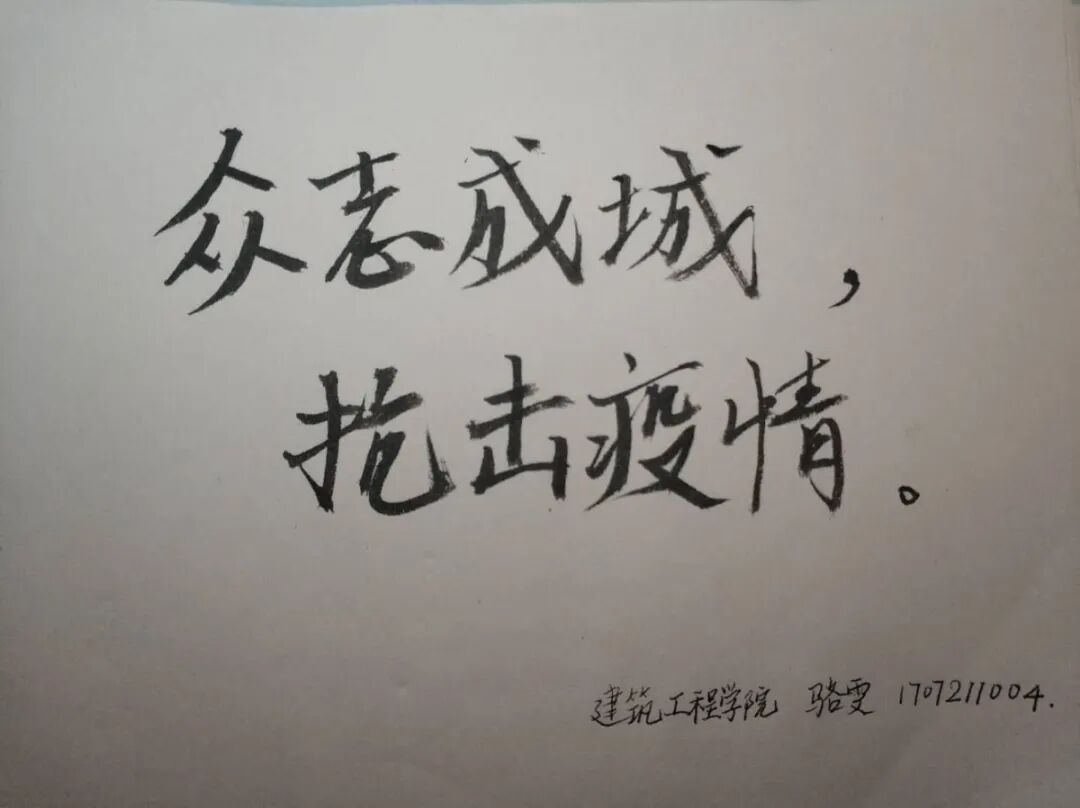 众志成城，
抢击疫情。
建筑工程学院 骆雯 1707211004.